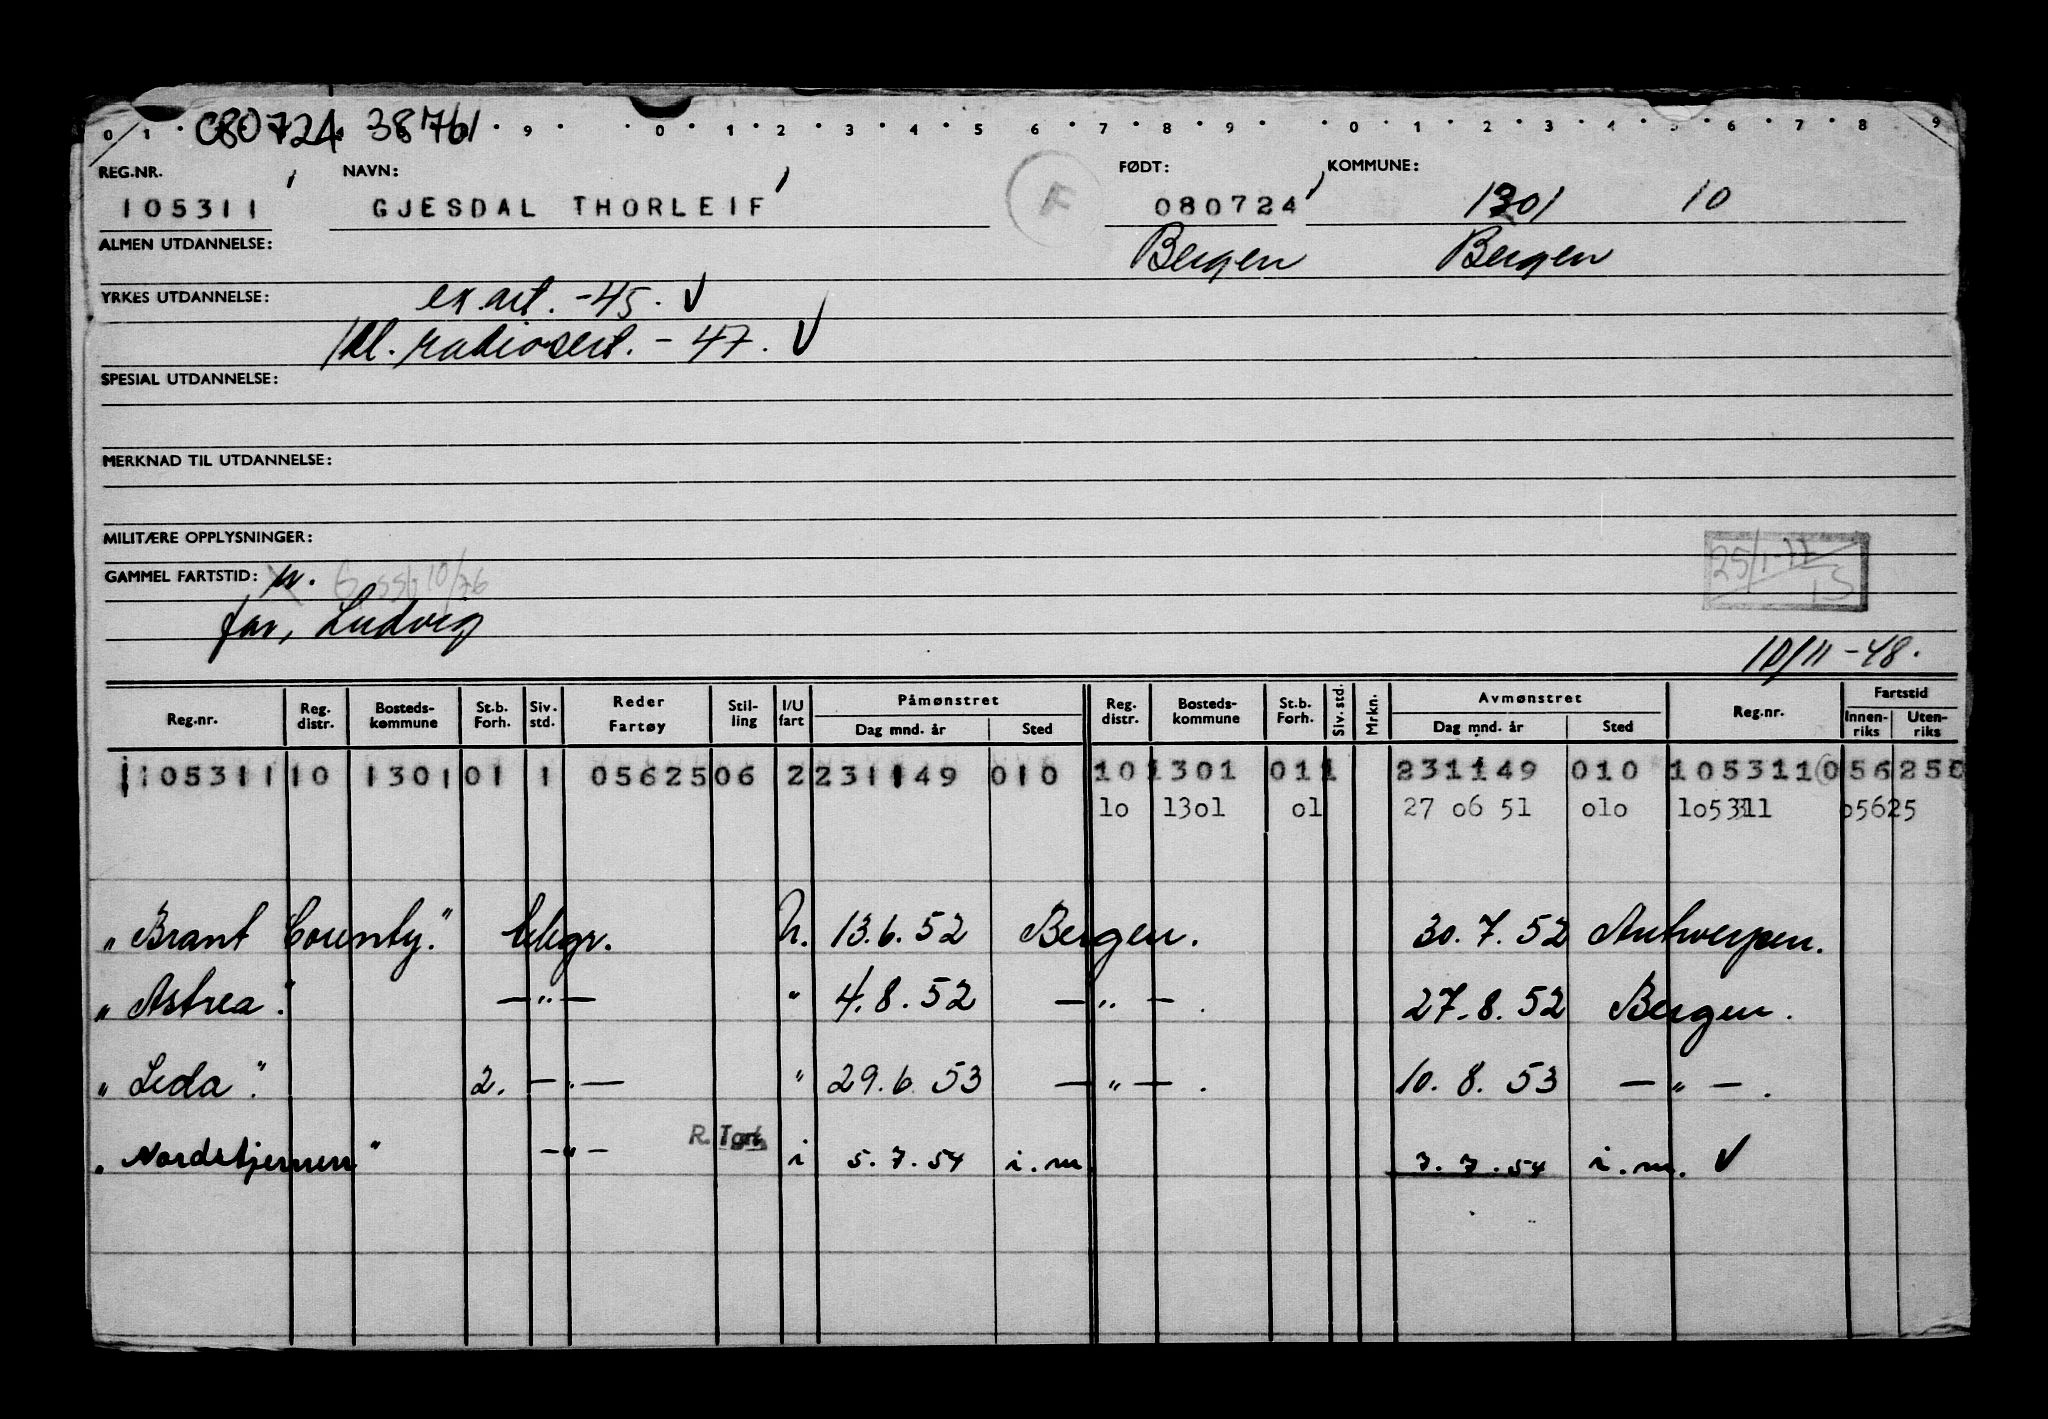 080724 38761
0 1 9 0 1 2 3 4 5 6 7 8 9 0 1 2 3 4 5 6 7 8 9
REG.NR. NAVN: FØDT: KOMMUNE:
105311 GJESDAL THORLEIF 080724 1301 10
ALMEN UTDANNELSE: Bergen Bergen
YRKES UTDANNELSE: ex art. -45. V
1kl. radiosert. - 47. V
SPESIAL UTDANNELSE:
MERKNAD TIL UTDANNELSE:
MILITÆRE OPPLYSNINGER:
25/1-77
GAMMEL FARTSTID: 10/76
15
far, Ludvig
10/11 -48.
Reg.nr. Reg. distr. Bosteds- kommune St.b. Forh. Siv. std. Reder Fartøy Stil- ling I/U fart Påmønstret Dag mnd. år Sted Reg. distr. Bosteds- kommune St.b. Forh. Siv. std. Mrkn. Avmønstret Dag mnd. år Sted Reg.nr. Fartstid Innen- riks Uten- riks
105311 10 1301 01 1 05625 06 2 231149 010 10 1301 01 1 231149 010 105311 056250
10 1301 01 27 06 51 010 105311 05625
"Brant County." telegr. U. 13.6.52 Bergen. 30.7.52 Antwerpen.
"Astrea". — " — " 4.8.52 — " — . 27.8.52 Bergen.
"Leda". 2. — " — " 29.6.53 — " — . 10.8.53 — " — .
"Nordstjernen" — " — R. i 5.7.54 i.m. 7.7.54 i.m. V